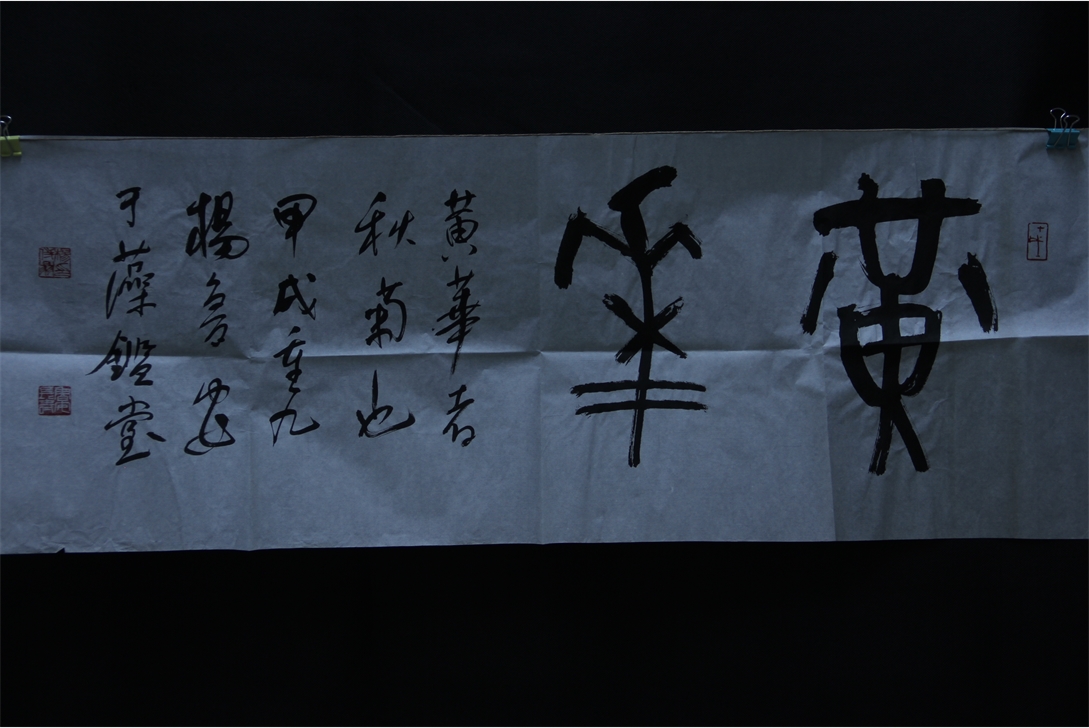 黄華
黄華者
秋菊也
甲戌重九
楊魯安
于藻鑑堂